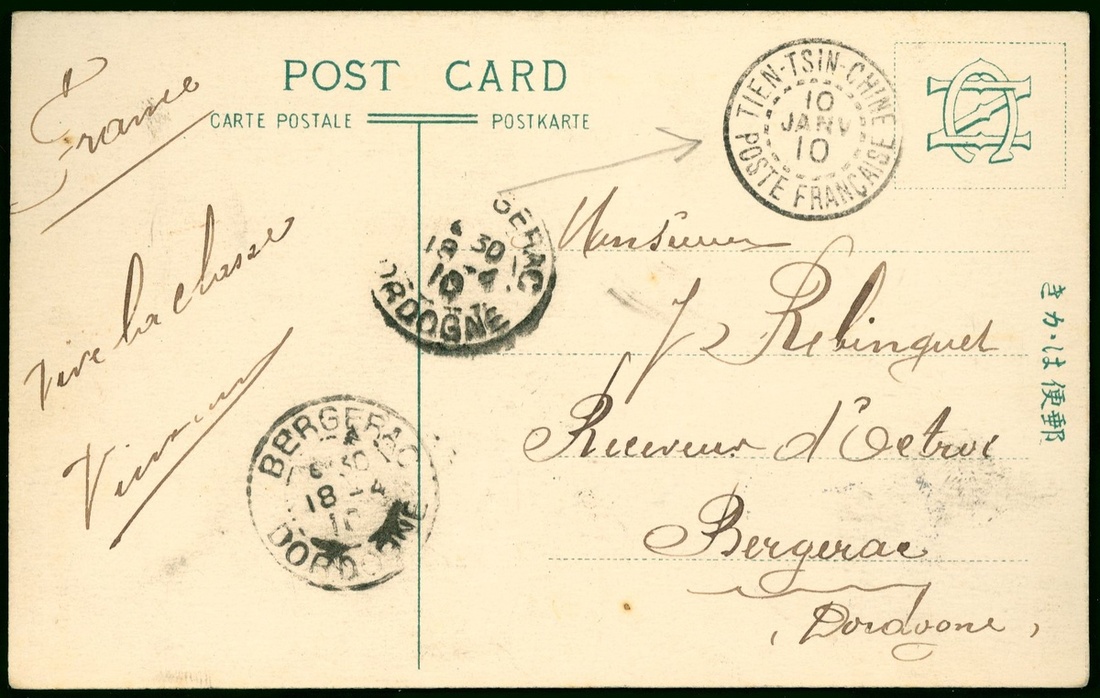 POST CARD
CARTE POSTALE
POSTKARTE
TIEN-TSIN-CHINE
10
JANV
10
POSTE FRANÇAISE
France
Vive la classe
GERAC
6 30
18 - 4
10
DORDOGNE
BERGERAC
6 30
18 - 4
10
DORDOGNE
Monsieur
J Rebinguet
Receveur d'Octroi
Bergerac
(Dordogne)
きかは便郵